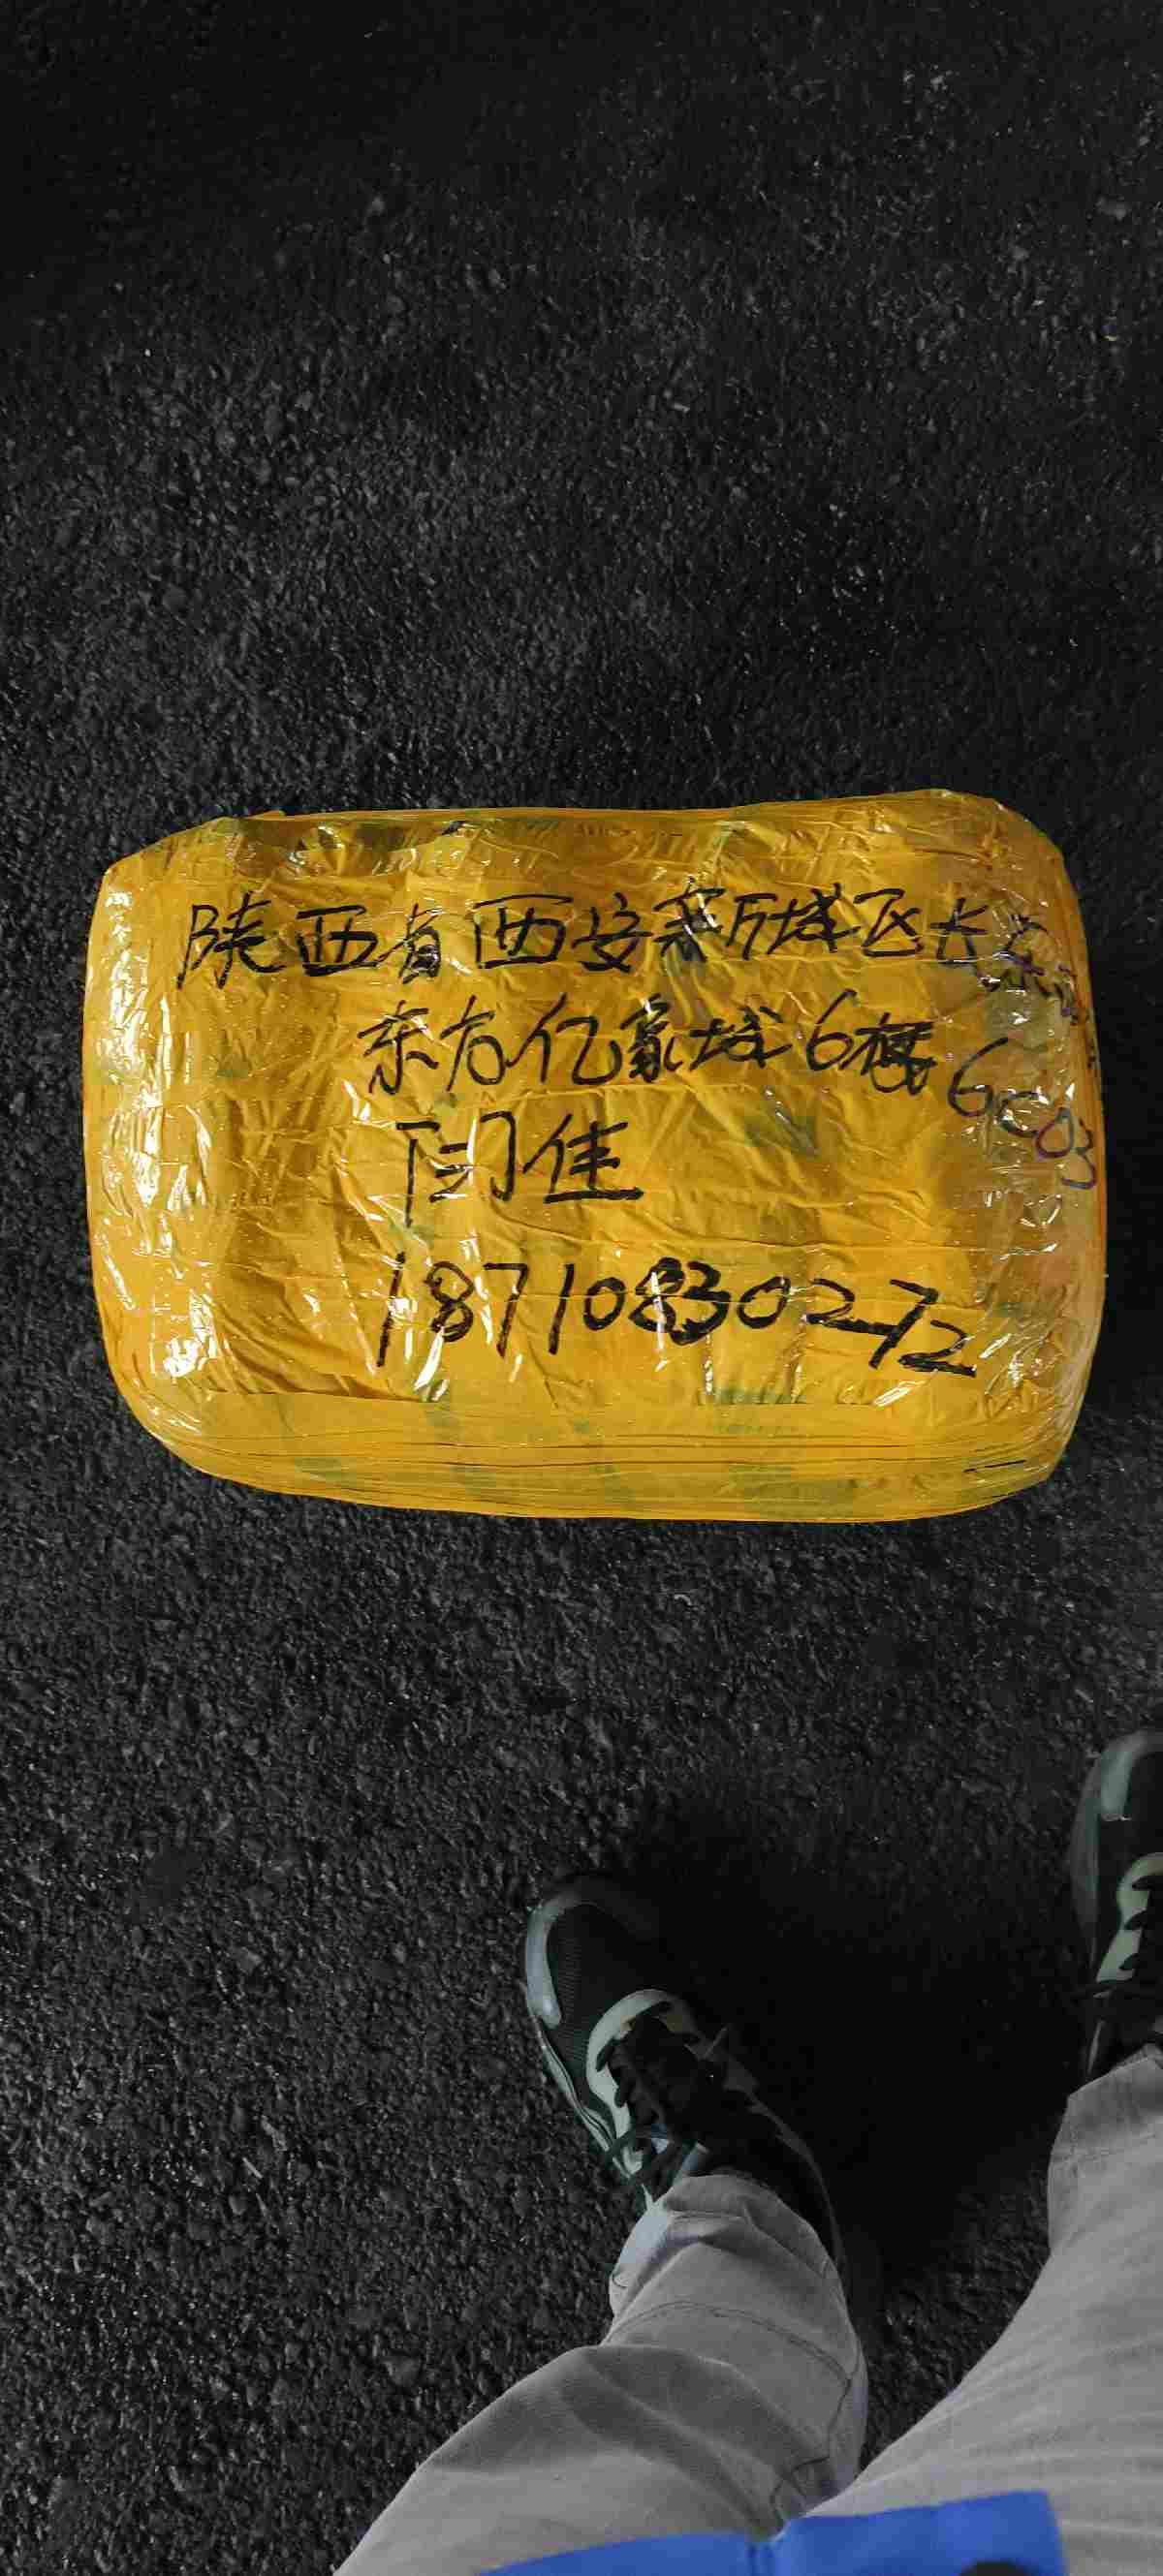 陕西省西安新城区长乐
东方亿象城6楼6C03
闫佳
18710830272